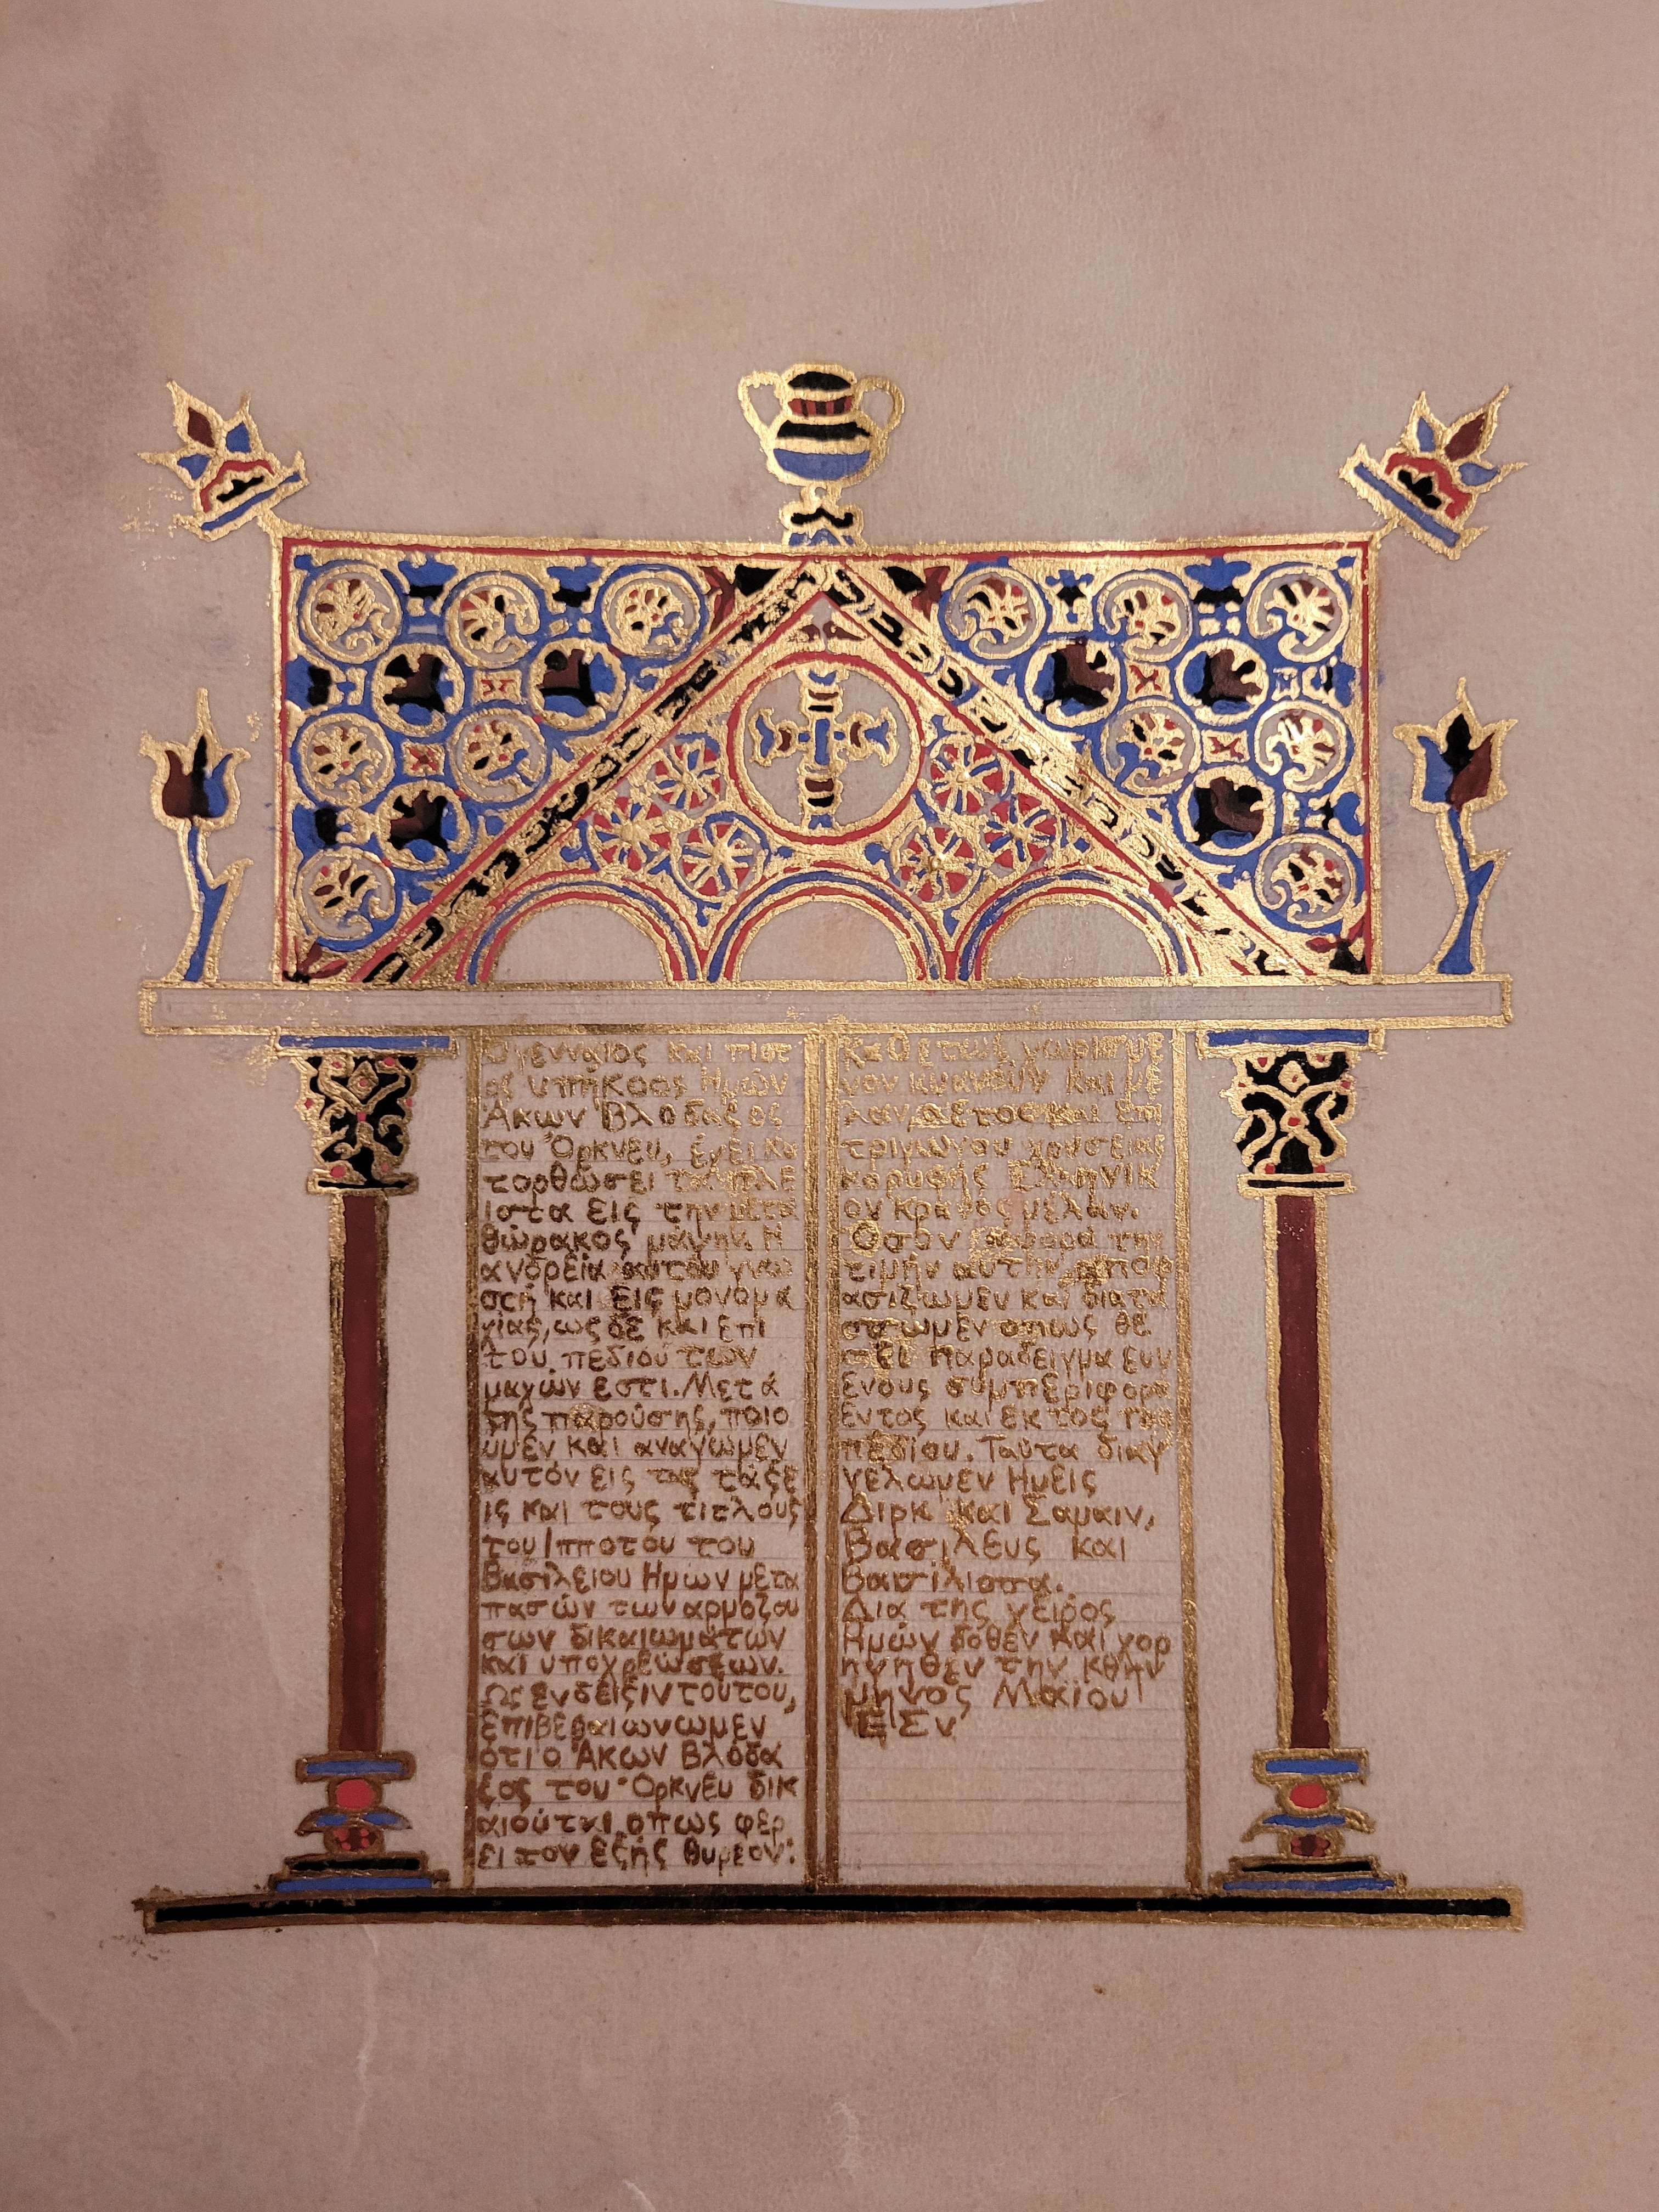 Ο γενναίος και πιστ
ός υπήκοος Ημών
Άκων Βλόδαξος
του Όρκνευ, έχει κα
τορθώσει τα πλε
ίστα εις την μετα
θώρακος μάχην. Η
ανδρεία αυτού γνω
στή και εις μονομα
χίας, ως δε και επι
του πεδίου των
μαχών εστι. Μετά
της παρούσης, ποιο
ύμεν και αναγωμεν
αυτόν εις τας τάξε
ις και τους τίτλους
του Ιππότου του
Βασιλείου Ημων μετα
πασών των αρμοζου
σων δικαιωμάτων
και υποχρεώσεων.
Ως ένδειξιν τούτου,
επιβεβαιώνωμεν
ότι ο Άκων Βλόδα
ξος του Όρκνευ δικ
αιούται όπως φέρ
ει τον εξής θυρεον:
Καθέτως χωρισμέ
νον κυανούν και μέ
λαν, αετος και επι
τριγώνου χρυσείας
κορυφής Ελληνικ
ον κράνος μέλαν.
Όσον αφορά την
τιμήν αυτήν, αποφ
ασίζωμεν και διατα
σσωμεν όπως θέ
σει παράδειγμα ευγ
ένους συμπεριφορα
εντός και εκτος του
πεδίου. Ταύτα διαγ
γέλωμεν Ημείς
Διρκ και Σαμαιν,
Βασιλεύς και
Βασίλισσα.
Δια της χειρός
Ημών δοθέν και χορ
ηγηθεν την
μηνός Μαϊου
ΕΣν